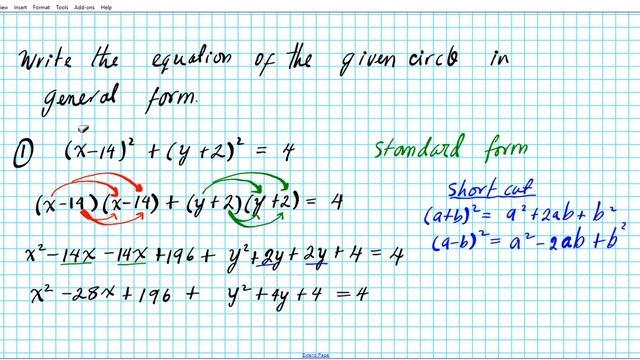 View Insert Format Tools Add-ons Help
Write the equation of the given circle in
general form.
① (x-14)² + (y+2)² = 4 standard form
(x-14)(x-14) + (y+2)(y+2) = 4
short cut
(a+b)² = a² + 2ab + b²
(a-b)² = a² - 2ab + b²
x² - 14x - 14x + 196 + y² + 2y + 2y + 4 = 4
x² - 28x + 196 + y² + 4y + 4 = 4
Extend Page